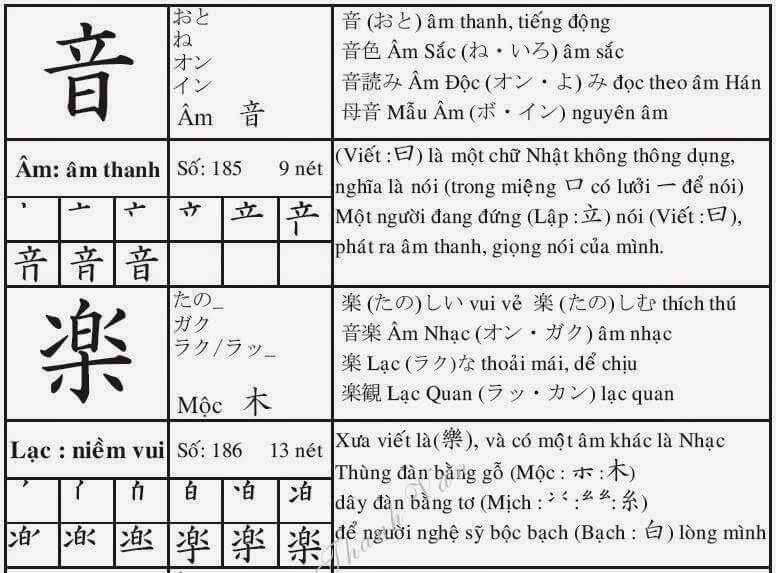 音
おと
ね
オン
イン
Âm 音
音 (おと) âm thanh, tiếng động
音色 Âm Sắc (ね・いろ) âm sắc
音読み Âm Độc (オン・よ) み đọc theo âm Hán
母音 Mẫu Âm (ボ・イン) nguyên âm
Âm: âm thanh
Số: 185 9 nét
(Viết :曰) là một chữ Nhật không thông dụng,
nghĩa là nói (trong miệng 口 có lưởi 一 để nói)
Một người đang đứng (Lập :立) nói (Viết :曰),
phát ra âm thanh, giọng nói của mình.
音 音
楽
たの_
ガク
ラク/ラッ_
Mộc 木
楽 (たの)しい vui vẻ 楽 (たの)しむ thích thú
音楽 Âm Nhạc (オン・ガク) âm nhạc
楽 Lạc (ラク)な thoải mái, dể chịu
楽観 Lạc Quan (ラッ・カン) lạc quan
Lạc : niềm vui
Số: 186 13 nét
Xưa viết là(樂), và có một âm khác là Nhạc
Thùng đàn bằng gỗ (Mộc : 木)
dây đàn bằng tơ (Mịch : 糸)
để người nghệ sỹ bộc bạch (Bạch : 白) lòng mình
楽
Thanh Van